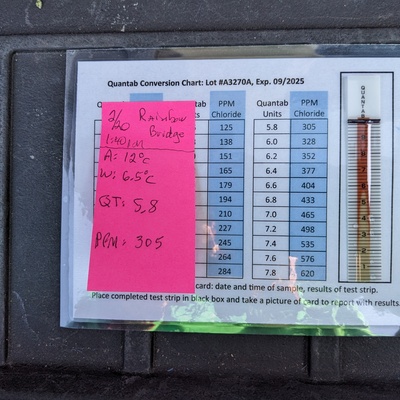 Quantab Conversion Chart: Lot #A3270A, Exp. 09/2025
Quantab PPM Quantab PPM
Chloride Units Chloride
125 5.8 305
138 6.0 328
151 6.2 352
165 6.4 377
179 6.6 404
194 6.8 433
210 7.0 465
227 7.2 498
245 7.4 535
264 7.6 576
284 7.8 620
Rainbow
Bridge
A: 12°C
W: 6.5°C
QT: 5.8
PPM: 305
QUANTAB
card: date and time of sample, results of test strip.
Place completed test strip in black box and take a picture of card to report with results.